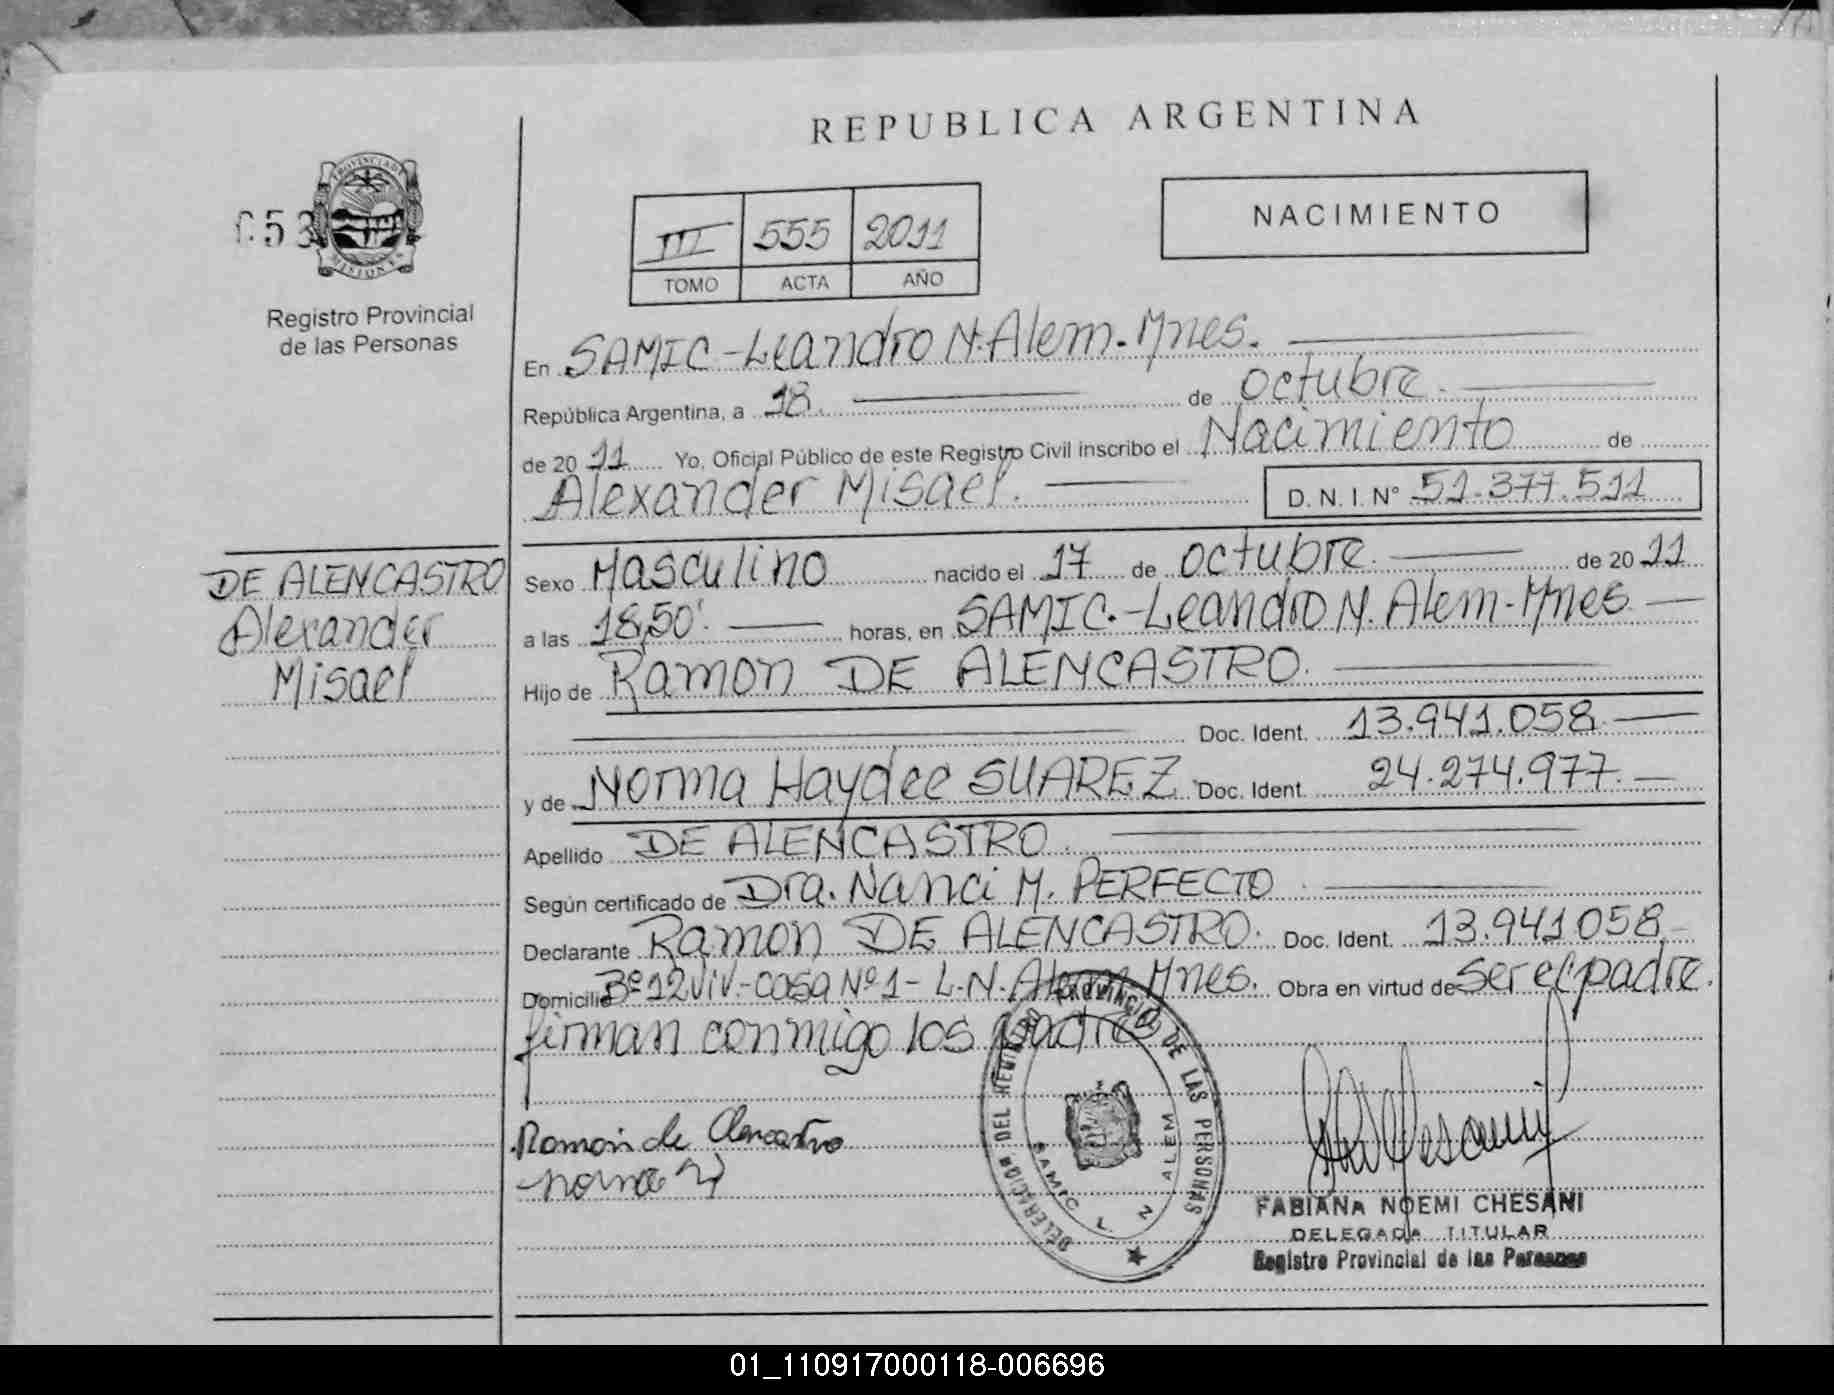 REPUBLICA ARGENTINA
PROVINCIA DE
MISIONES
053
Registro Provincial
de las Personas
III 555 2011
TOMO ACTA AÑO
NACIMIENTO
En SAMIC-Leandro N.Alem.Mnes.
República Argentina, a 18. de octubre.
de 2011 Yo, Oficial Público de este Registro Civil inscribo el Nacimiento de
Alexander Misael. D. N. I. Nº 51.377.511
DE ALENCASTRO
Alexander
Misael
Sexo Masculino nacido el 17 de octubre. de 2011
a las 18,50'. horas, en SAMIC.-Leandro N. Alem-Mnes.
Hijo de Ramon DE ALENCASTRO.
Doc. Ident. 13.941.058.
y de Norma Haydee SUAREZ. Doc. Ident. 24.274.977.
Apellido DE ALENCASTRO.
Según certificado de Dra. Nanci M. PERFECTO.
Declarante Ramon DE ALENCASTRO. Doc. Ident. 13.941058.
Domicilio Bº12Viv.-casa Nº1- L.N. Alem Mnes. Obra en virtud de Ser el padre.
firman conmigo los padres
Ramon de Alencastro
norma
DELEGACION DEL REGISTRO PROVINCIAL DE LAS PERSONAS
SAMIC L N ALEM
FABIANA NOEMI CHESANI
DELEGADA TITULAR
Registro Provincial de las Personas
01_110917000118-006696